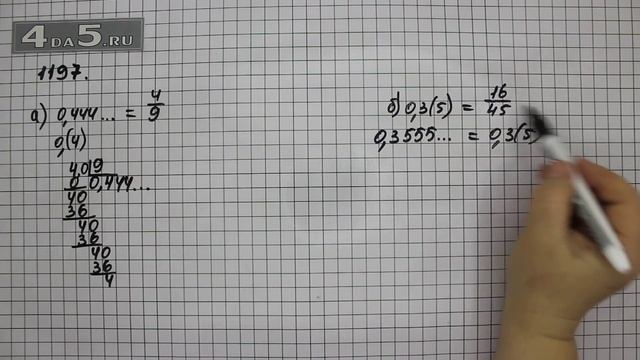 4DA5.RU
1197.
а) 0,444... = 4/9
0,(4)
4,0 9
0 0,444...
40
36
40
36
40
36
4
б) 0,3(5) = 16/45
0,3555... = 0,3(5)